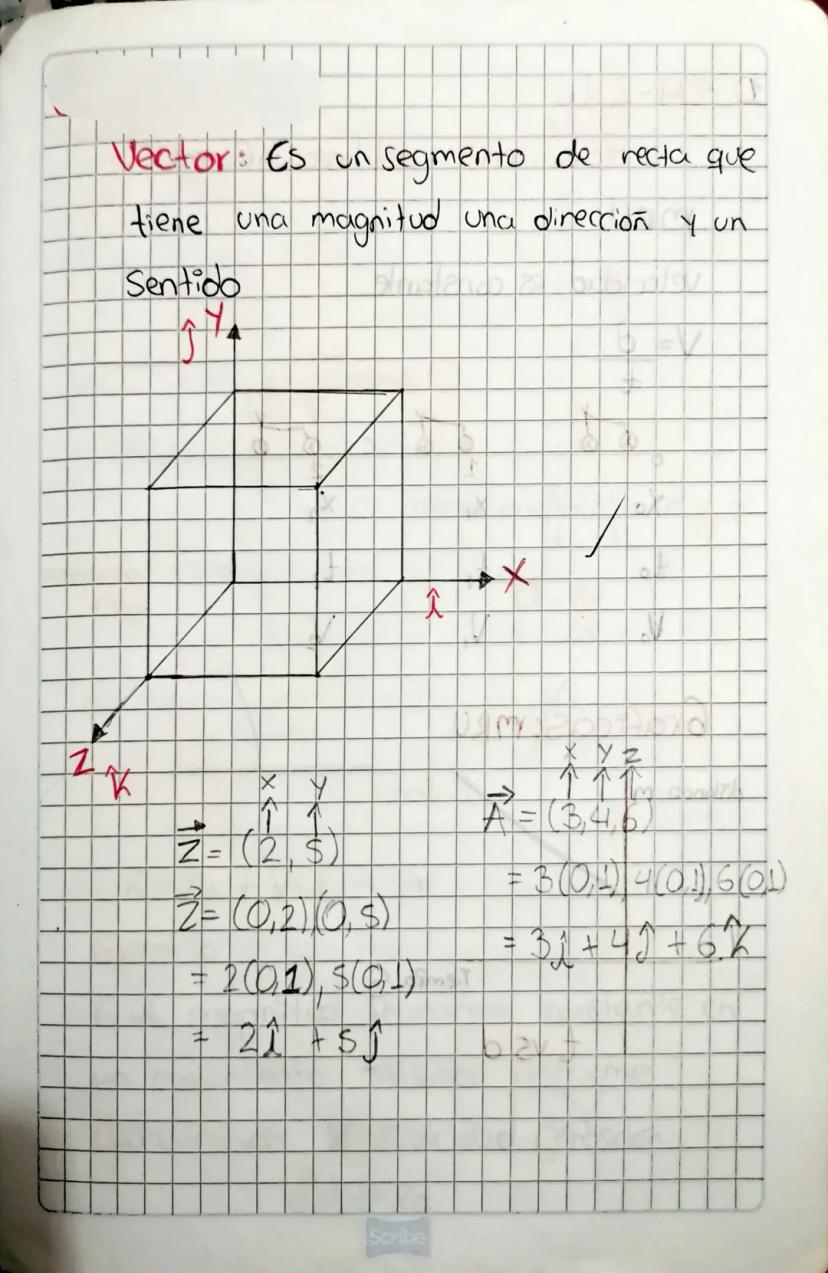 Vector: Es un segmento de recta que
tiene una magnitud una dirección y un
Sentido
ĵ Y
X
î
Z
k̂
X Y
Z⃗ = (2, 5)
Z⃗ = (0,2)(0,5)
= 2(0,1), 5(0,1)
= 2î + 5ĵ
X Y Z
A⃗ = (3,4,6)
= 3(0,1), 4(0,1), 6(0,1)
= 3î + 4ĵ + 6k̂
Scribe